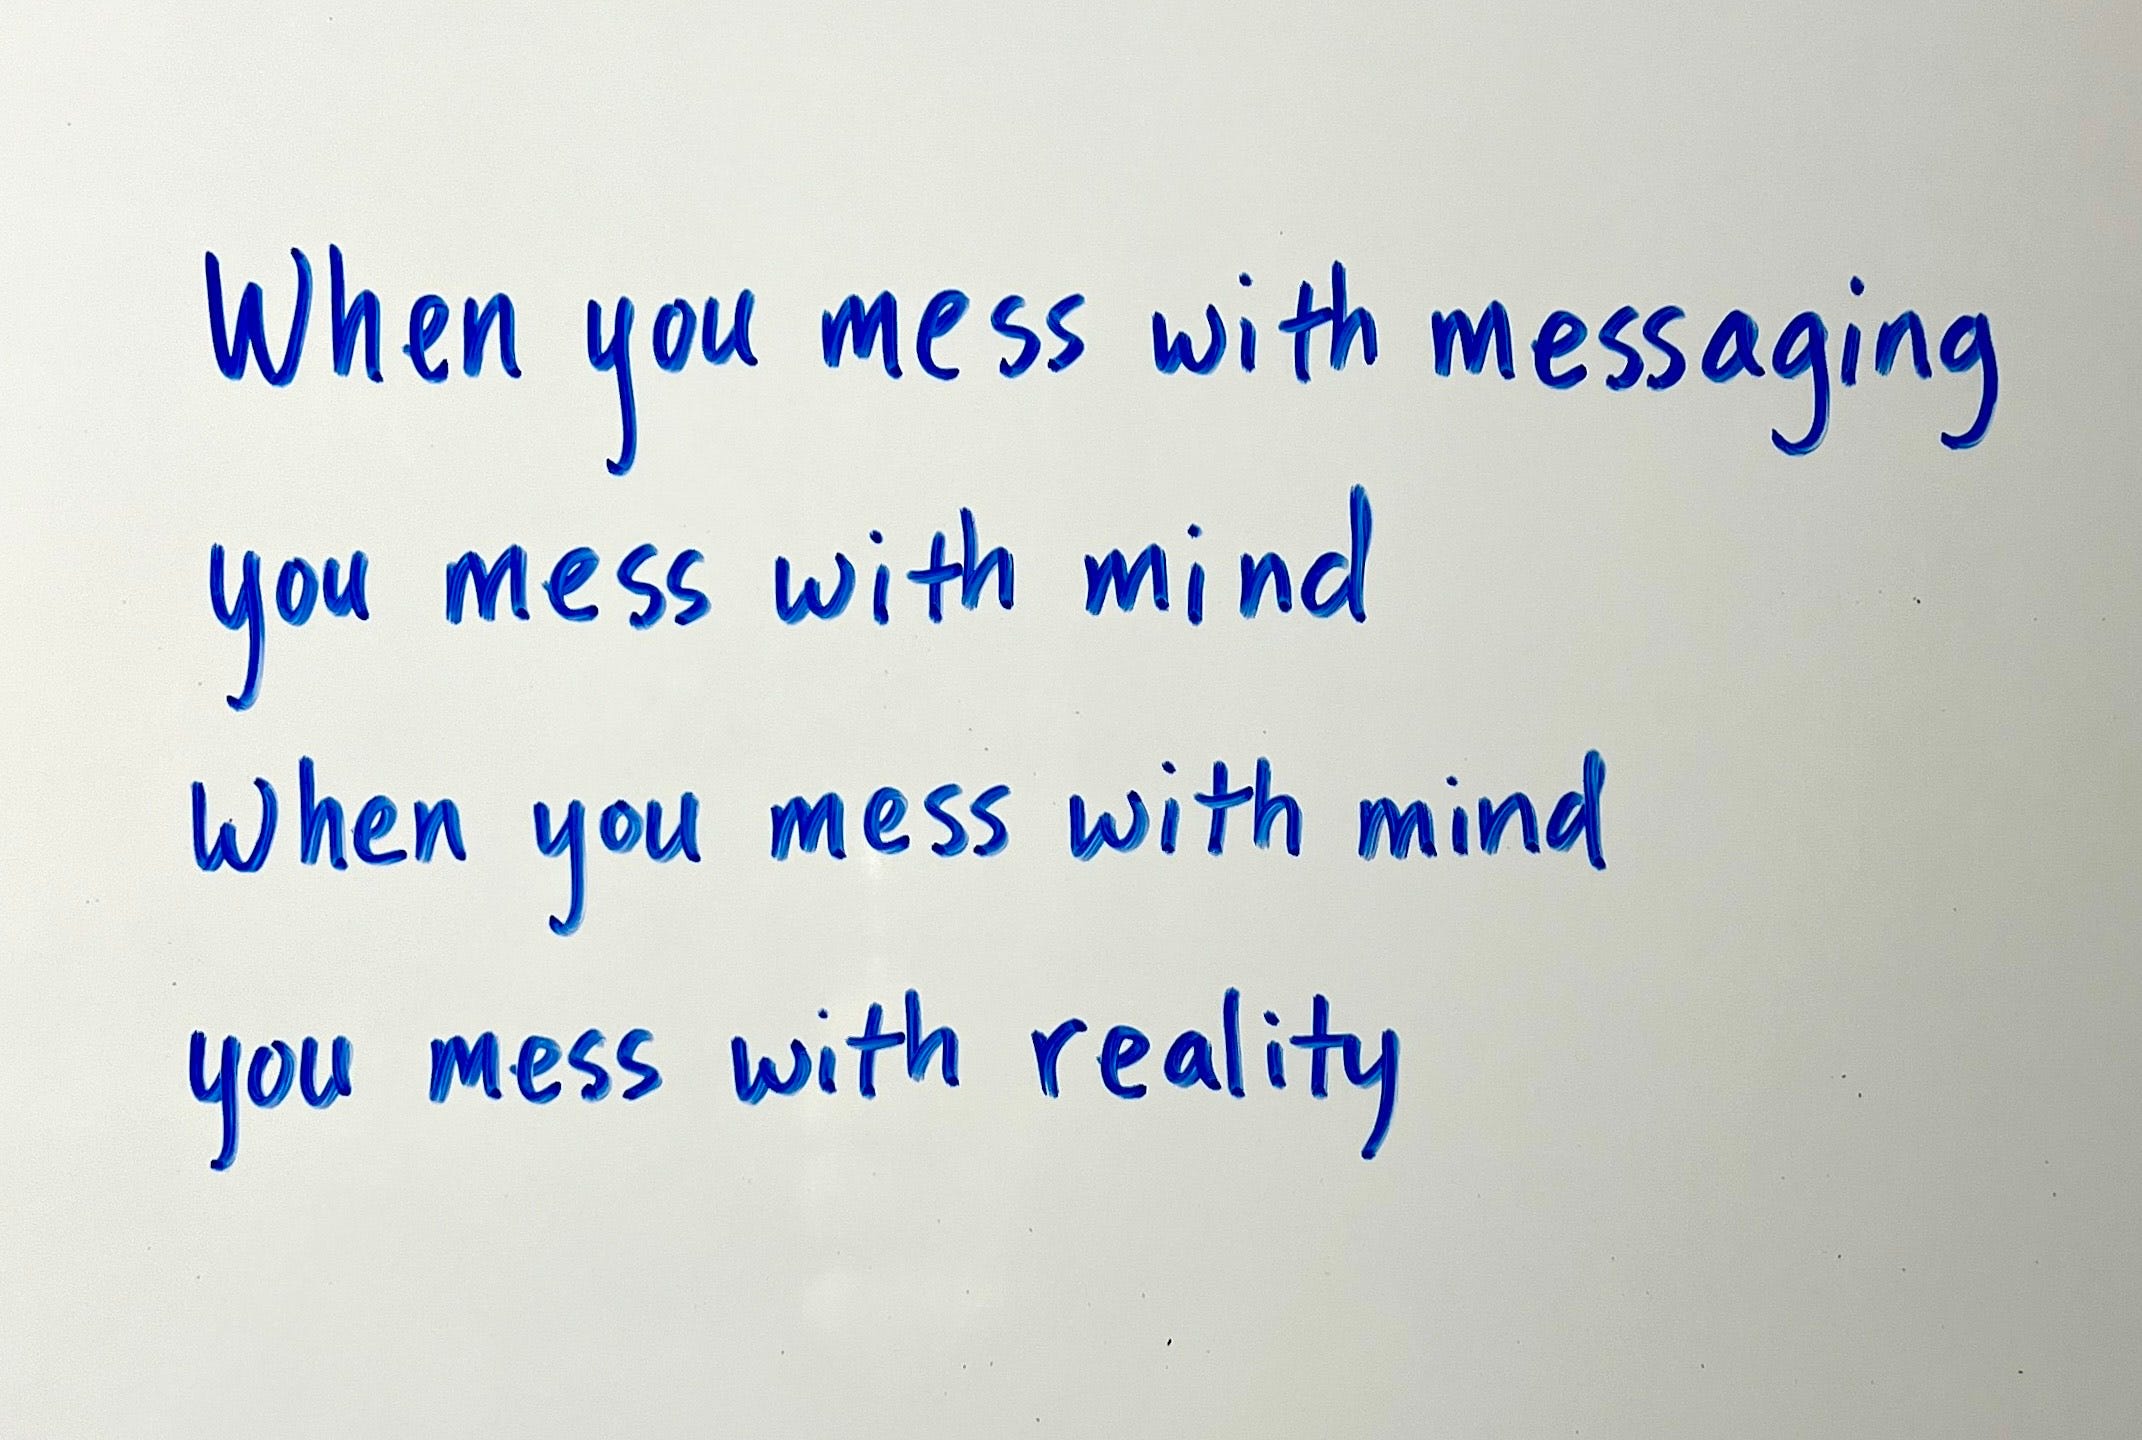 When you mess with messaging
you mess with mind
When you mess with mind
you mess with reality